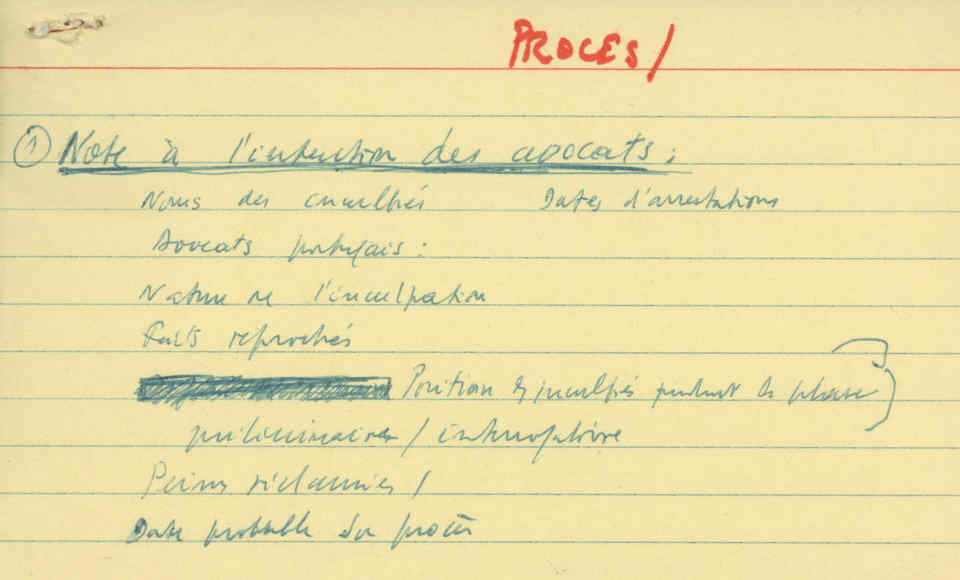 PROCES/
① Note à l'intention des avocats :
Noms des inculpés Dates d'arrestations
Avocats portugais :
Nature de l'inculpation
Faits reprochés
Position des inculpés pendant la phase
préliminaire / interrogatoire
Peines réclamées /
Date probable du procès